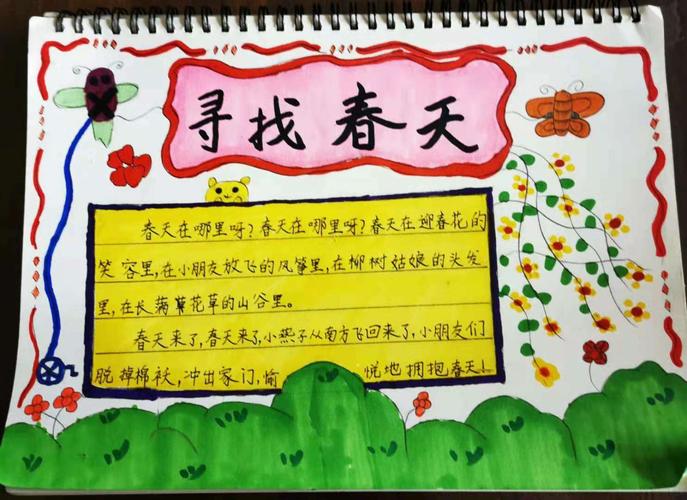 寻找春天
春天在哪里呀？春天在哪里呀？春天在迎春花的
笑容里，在小朋友放飞的风筝里，在柳树姑娘的头发
里，在长满花草的山谷里。
春天来了，春天来了，小燕子从南方飞回来了，小朋友们
脱掉棉袄，冲出家门，愉悦地拥抱春天！